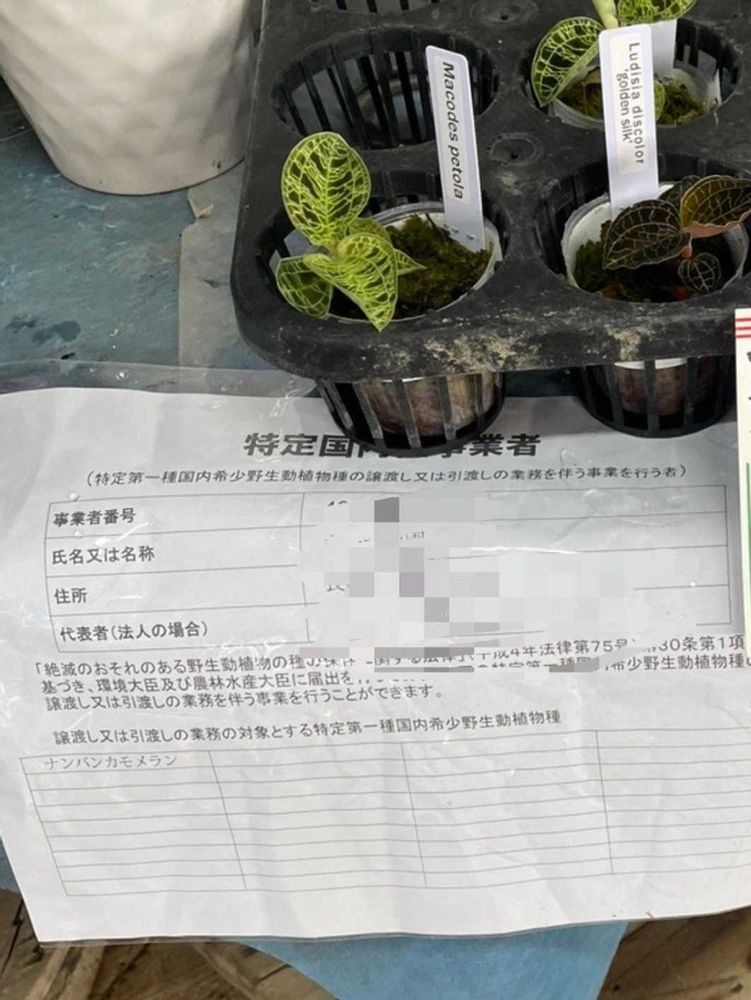 Macodes petola
Ludisia discolor
'golden silk'
特定国内 事業者
(特定第一種国内希少野生動植物種の譲渡し又は引渡しの業務を伴う事業を行う者)
事業者番号
氏名又は名称
住所
代表者(法人の場合)
「絶滅のおそれのある野生動植物の種の保存に関する法律」(平成4年法律第75号)第30条第1項
基づき、環境大臣及び農林水産大臣に届出を 特定第一種国内希少野生動植物種の
譲渡し又は引渡しの業務を伴う事業を行うことができます。
譲渡し又は引渡しの業務の対象とする特定第一種国内希少野生動植物種
ナンバンカモメラン